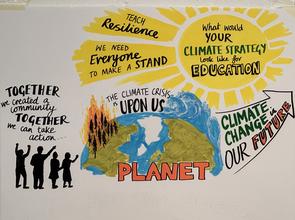 TEACH
Resilience
WE NEED
Everyone
TO MAKE A STAND
What would
YOUR
CLIMATE STRATEGY
look like for
EDUCATION
THE CLIMATE CRISIS
is UPON US
TOGETHER
we created a
community
TOGETHER
we can take
action...
PLANET
CLIMATE
CHANGE is
OUR FUTURE